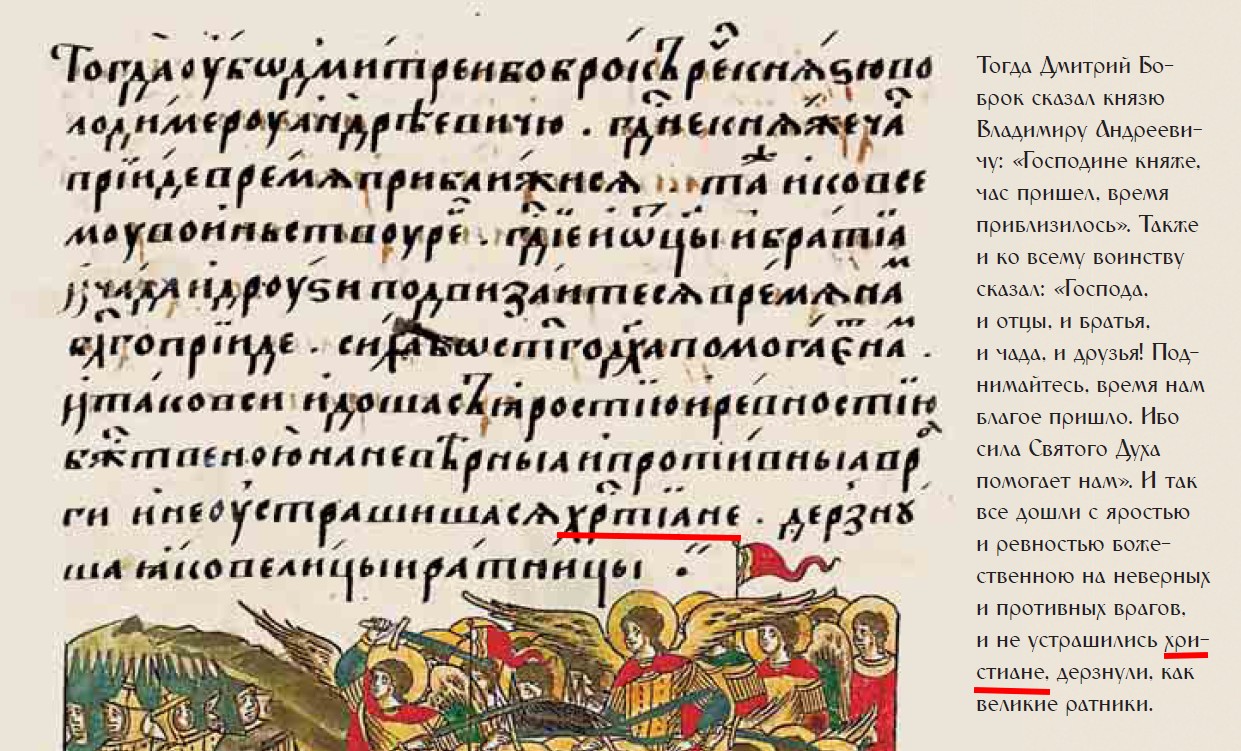 Тогда оубѡ дмитреи боброкъ реⷱ҇ княѕю во
лодимероу андрѣевичю . гд҃не княже чаⷭ҇
прїиде время приближися . таⷦ҇ и ко все
моу воиньствоу реⷱ҇ . гд҃їе и ѡц҃ы и братїа
и чада и дроуѕи подвизаитеся время наⷨ
бл҃го прїиде . сила бо ст҃го дх҃а помогаеⷮ наⷨ .
и тако вси идоша съ яростїю и ревностїю
бжⷭ҇твеною на невѣрныа и противныа враⷢ
ги и не оустрашишася хрⷭ҇тїане . дерзнꙋ
ша яко велицыи ратницы
Тогда Дмитрий Бо-
брок сказал князю
Владимиру Андрееви-
чу: «Господине княже,
час пришел, время
приблизилось». Также
и ко всему воинству
сказал: «Господа,
и отцы, и братья,
и чада, и друзья! Под-
нимайтесь, время нам
благое пришло. Ибо
сила Святого Духа
помогает нам». И так
все дошли с яростью
и ревностью боже-
ственною на неверных
и противных врагов,
и не устрашились хри-
стиане, дерзнули, как
великие ратники.